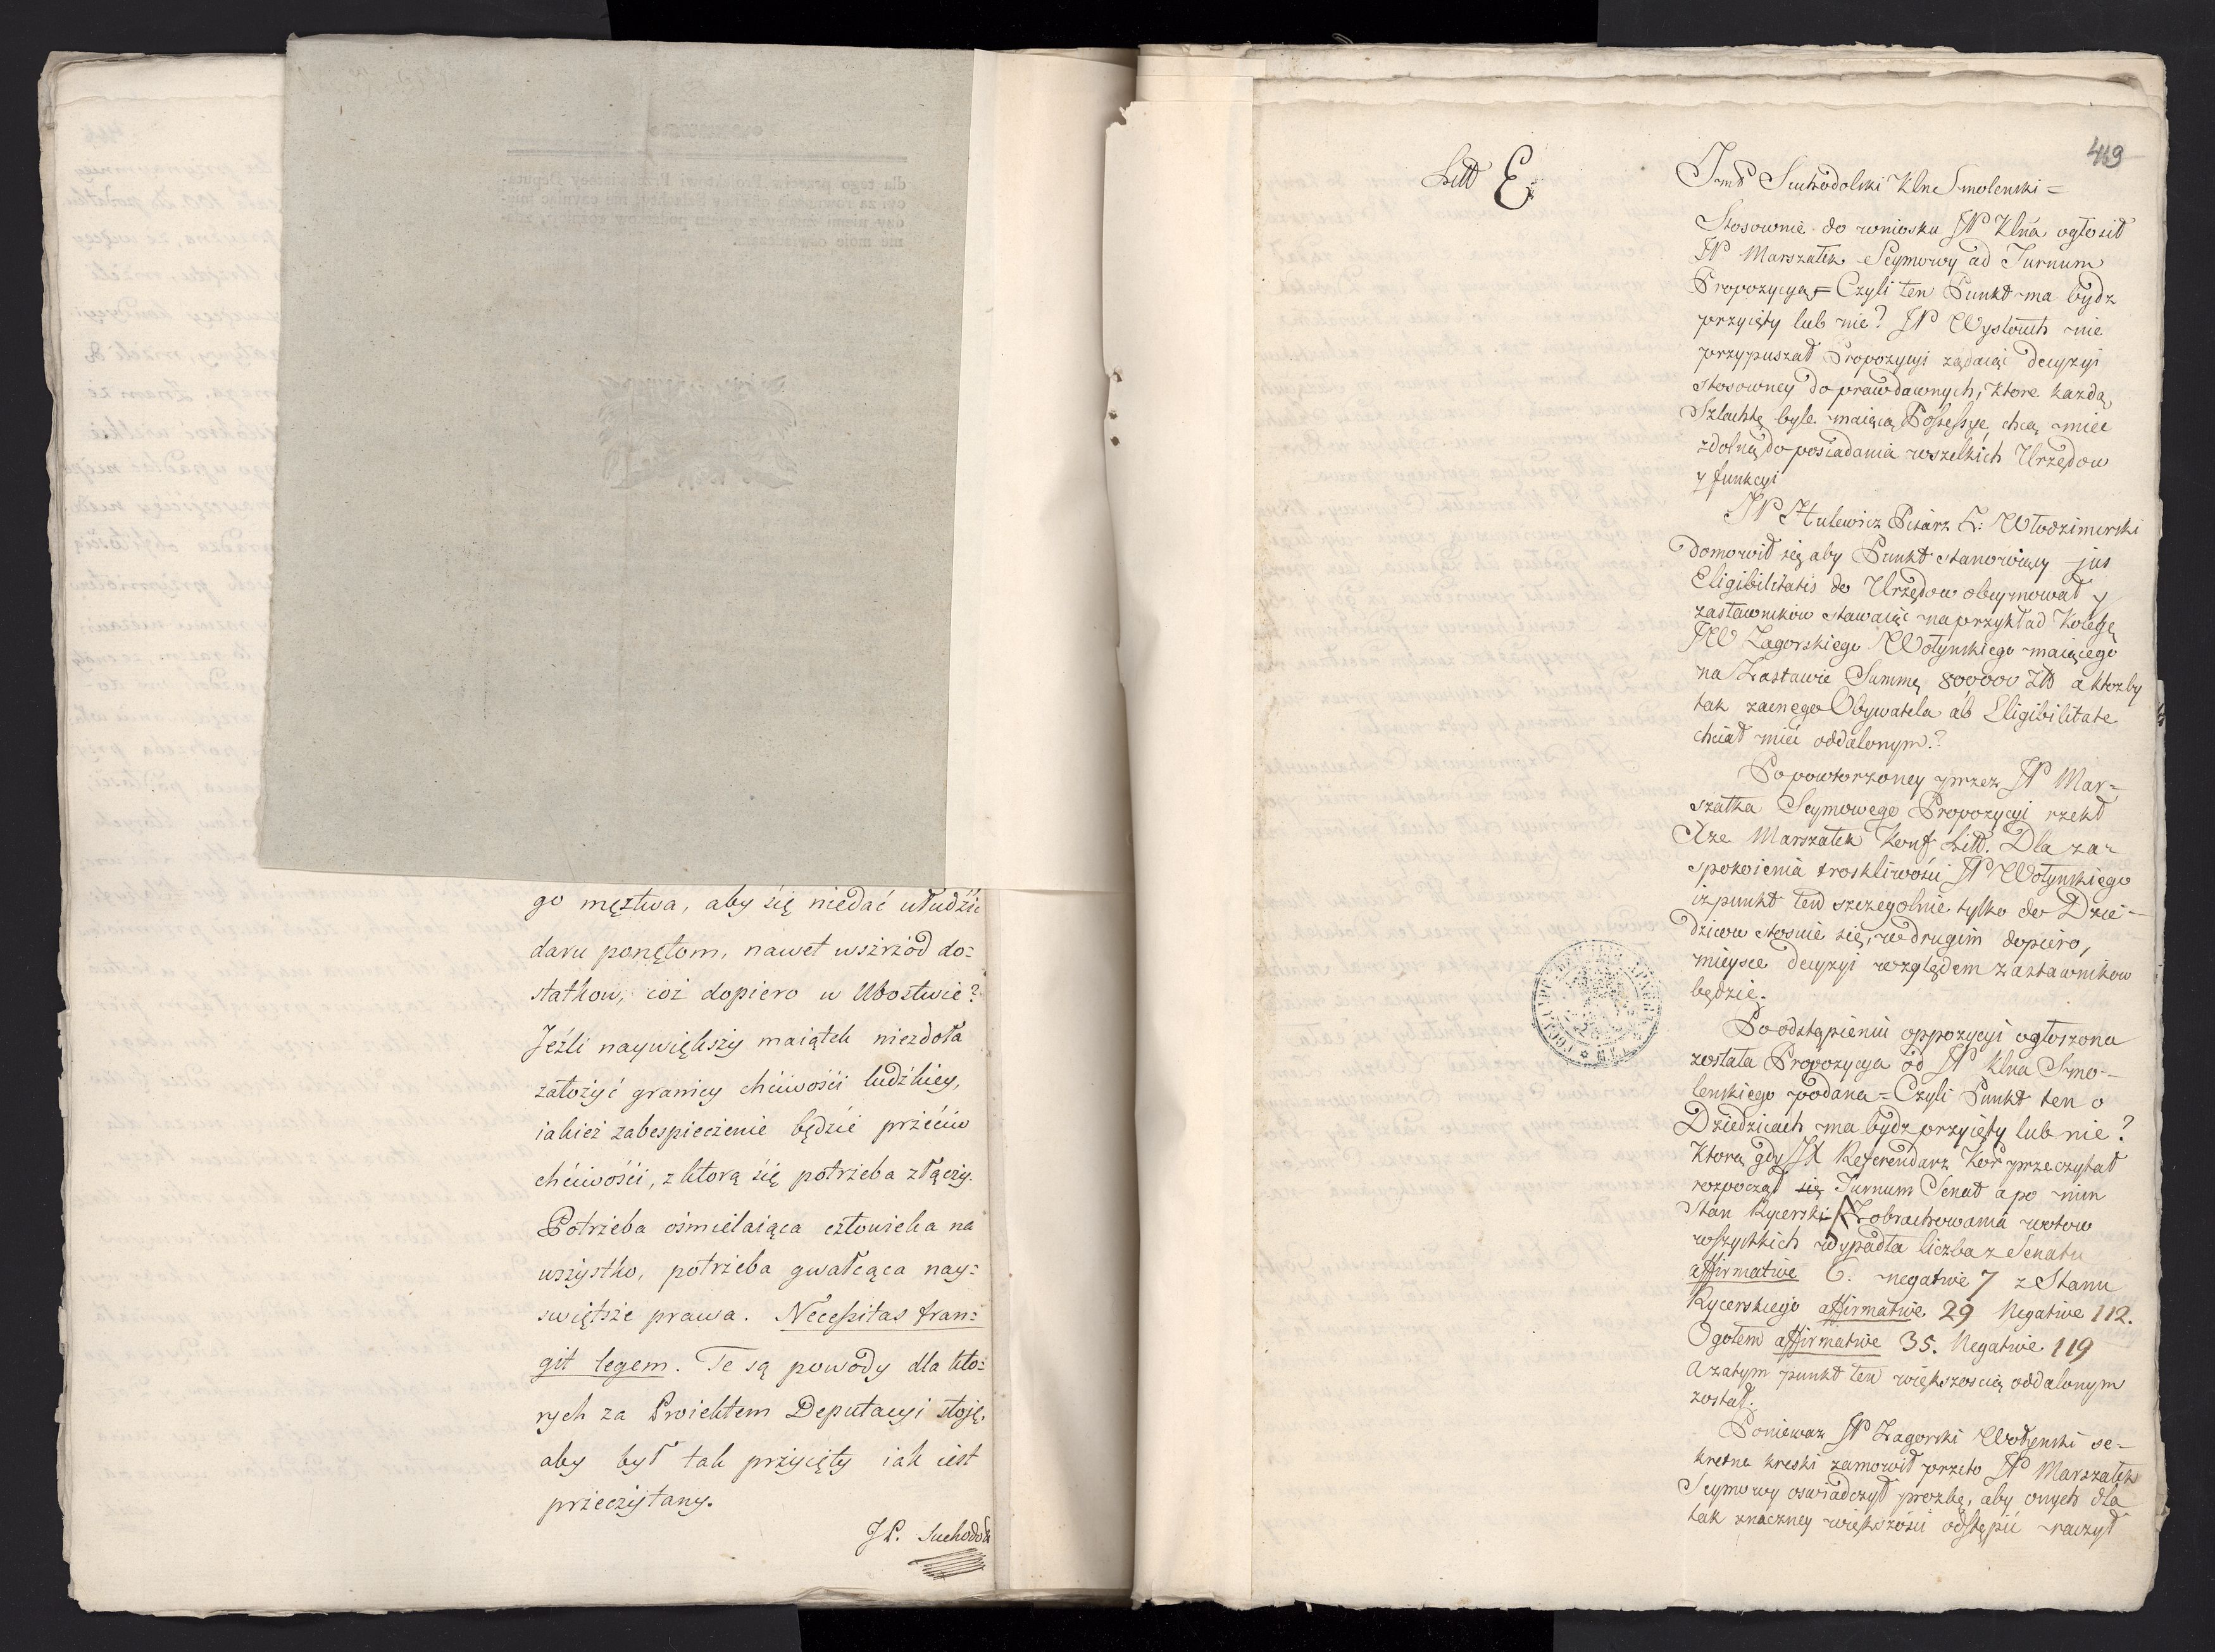 go męztwa, aby się niedać ułudzić
daru ponętom, nawet wsżrżód do=
statkow, coż dopiero w Ubostwie?
Jeźli naywiększy maiątek niezdoła
założyć granicy chciwości ludźkiey,
iakież zabespieczenie będzie przéciw
chciwości, z ktorą się potrzeba złączy.
Potrzeba osmielaiąca człowieka na
wszystko, potrzeba gwałcąca nay=
swiętsze prawa. Necessitas fran=
git legem. Te są powody dla kto=
rych za Proiektem Deputacyi stoję,
aby był tak przyięty iak iest
przeczytany.
JP. Suchodol
419
Litt E.
Jmd Suchodolski Klne Smolenski =
Stosownie do wniosku JP Klna ogłosił
JP Marszałek Seymowy ad Turnum
Propozycyą = Czyli ten Punkt ma bydz
przyięty lub nie? JP Wysłouch nie
przypuszał Propozycyi ządaiąc decyzyi
stosowney do praw dawnych, ktore kazdą
Szlachtę byle maiącą Possessyę chcą miec
zdolną do posiadania wszelkich Urzędow
y funkcyi
JP Hulewicz Pisarz Z: Włodzimirski
domowił się aby Punkt stanowiący jus
Eligibilitatis do Urzędow obeymował y
zastawnikow stawaiąc naprzykład Kolegę
JW Zagorskiego Wołynskiego maiącego
na Zastawie Summę 800000 Złł a ktozby
tak zacnego Obywatela ab Eligibilitate
chciał mieć oddalonym?
Po powtorzoney przez JP Mar=
szałka Seymowego Propozycyi rzekł
Xże Marszałek Konf Litt. Dla za=
spokoienia troskliwości JP Wołynskiego
iz punkt ten szczegolnie tylko do Dzie=
dzicow stosuie się, w drugim dopiero,
mieysce decyzyi względem zastawnikow
będzie.
Po odstąpieniu oppozycyi ogłoszona
została Propozycya od JP Klna Smo=
lenskiego podana = Czyli Punkt ten o
Dziedzicach ma bydz przyięty lub nie?
Ktorą gdy JX Referendarz Kor przeczytał
rozpoczął się Turnum Senat a po nim
Stan Rycerski Z obrachowania wotow
wszystkich wypadła liczba z Senatu
affirmative 6. negative 7 z Stanu
Rycerskiego affirmative 29 Negative 112.
Ogołem affirmative 35. Negative 119
a zatym punkt ten większoscią oddalonym
został.
Poniewaz JP Zagorski Wołynski se=
kretne kreski zamowił przeto JP Marszałek
Seymowy oswiadczył prozbę, aby onych dla
tak znaczney większości odstąpić raczył